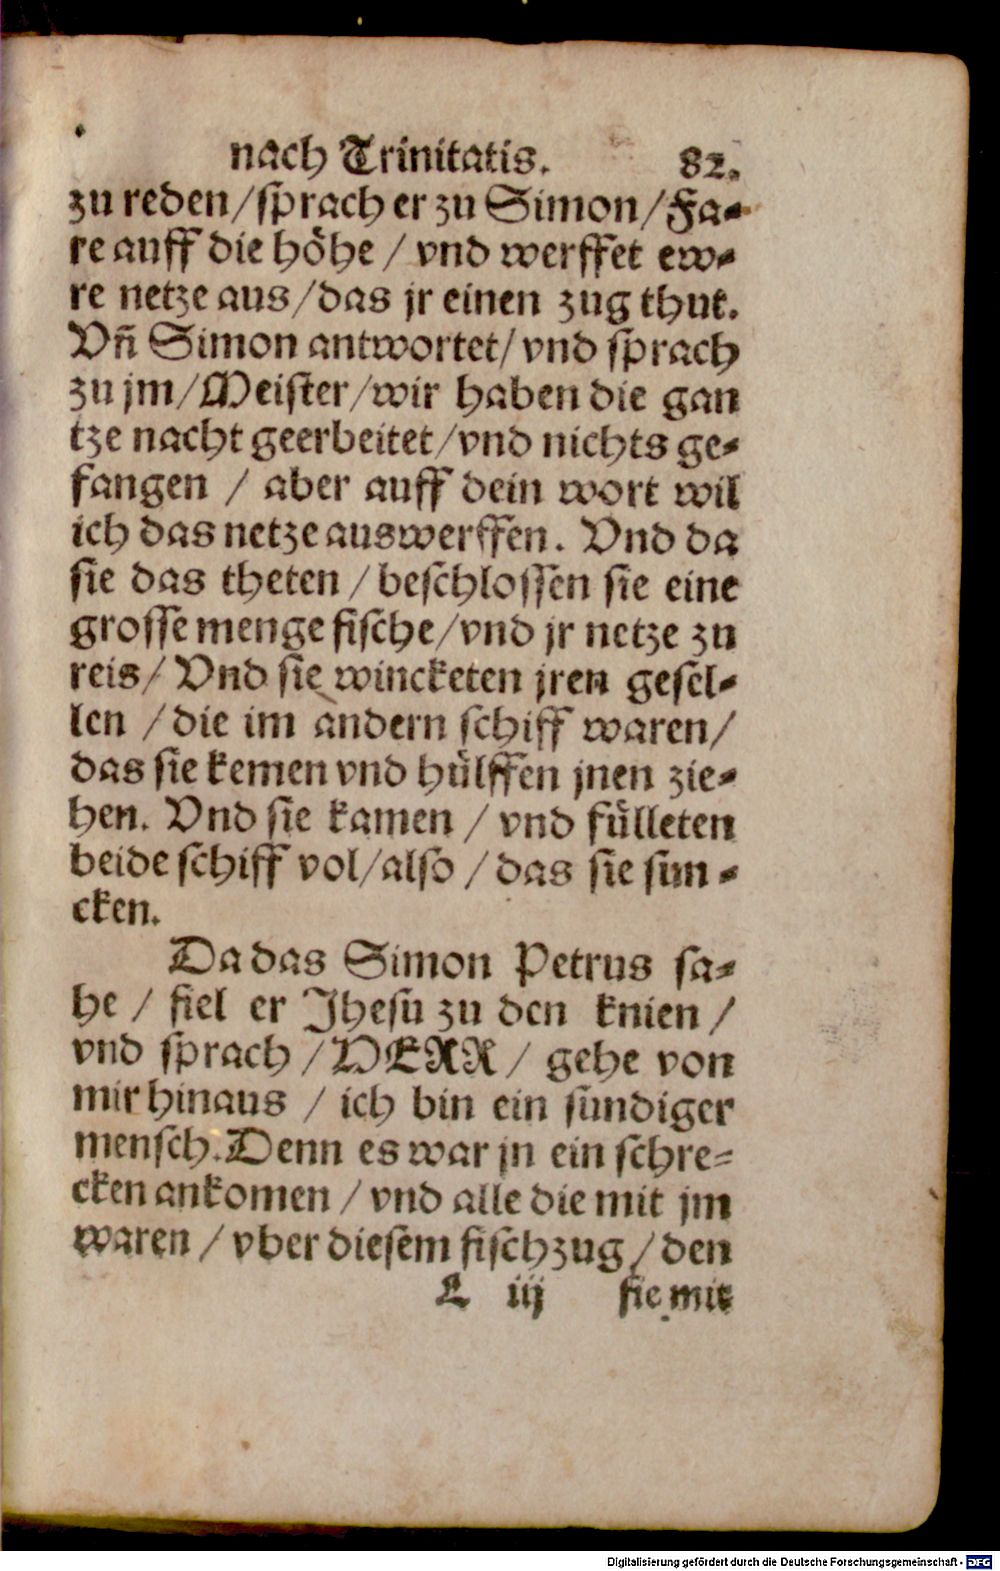 nach Trinitatis. 82.
zu reden/sprach er zu Simon/Fa-
re auff die höhe / vnd werffet ew-
re netze aus/das jr einen zug thut.
Vñ Simon antwortet/vnd sprach
zu jm/Meister/wir haben die gan
tze nacht geerbeitet/vnd nichts ge-
fangen / aber auff dein wort wil
ich das netze auswerffen. Vnd da
sie das theten / beschlossen sie eine
grosse menge fische/vnd jr netze zu
reis/ Vnd sie wincketen jren gesel-
len / die im andern schiff waren/
das sie kemen vnd hülffen jnen zie-
hen. Vnd sie kamen / vnd fülleten
beide schiff vol/also / das sie sun-
cken.
Da das Simon Petrus sa-
he / fiel er Jhesu zu den knien /
vnd sprach / HERR / gehe von
mir hinaus / ich bin ein sundiger
mensch. Denn es war jn ein schre-
cken ankomen / vnd alle die mit jm
waren / vber diesem fischzug / den
L iij sie mit
Digitalisierung gefördert durch die Deutsche Forschungsgemeinschaft - DFG